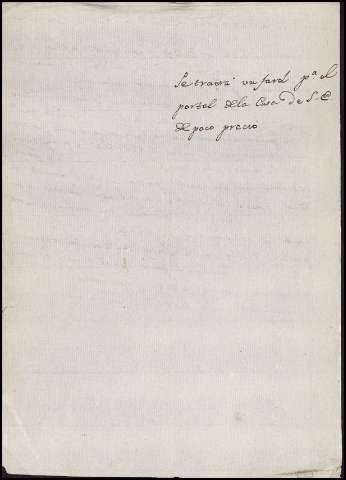 Se traerá un farol pª el
portal de la Casa de S. E.
de poco precio